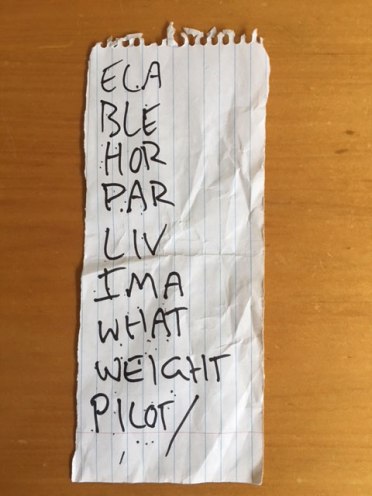 ECA
BLE
HOR
PAR
LIV
IMA
WHAT
WEIGHT
PILOT/